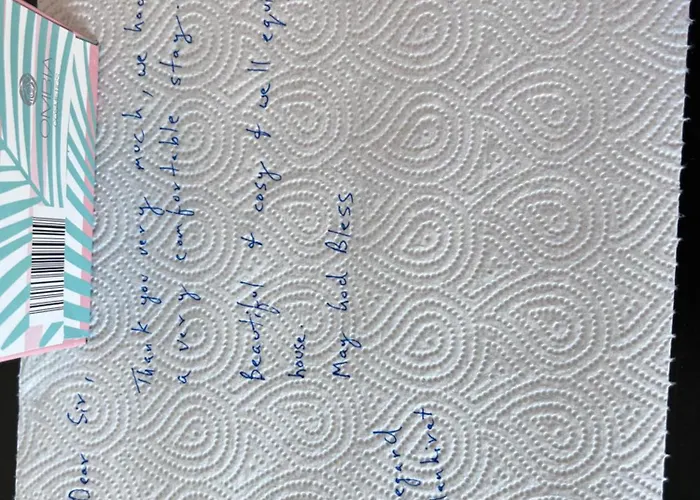 Dear Sir,
Thank you very much, we had
a very comfortable stay.
Beautiful & cosy & well equi
house.
May God Bless
egard